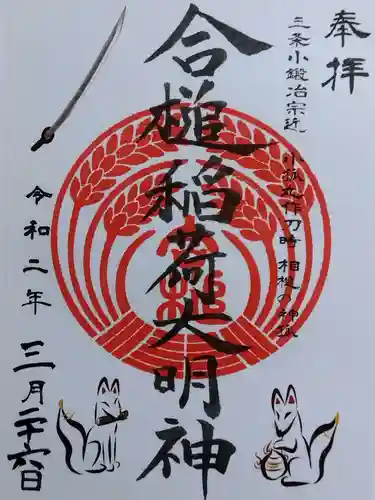 奉拝
三条小鍛冶宗近
小狐丸作刀時 相槌の神狐
合槌稲荷大明神
令和二年
三月二十六日